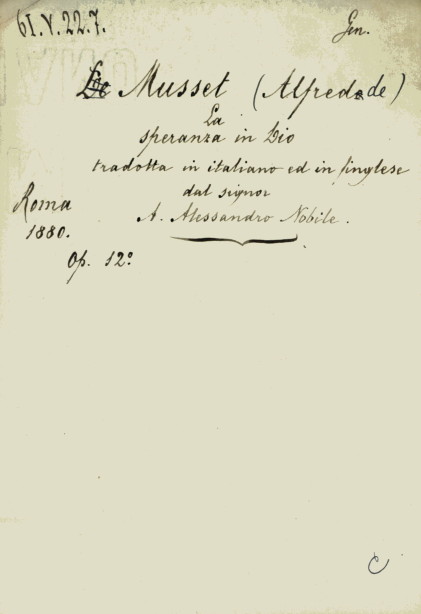 61.V.22.7.
Gen.
De Musset (Alfredo de)
La
speranza in Dio
tradotta in italiano ed in inglese
dal signor
A. Alessandro Nobile.
Roma
1880.
Op. 12º
C